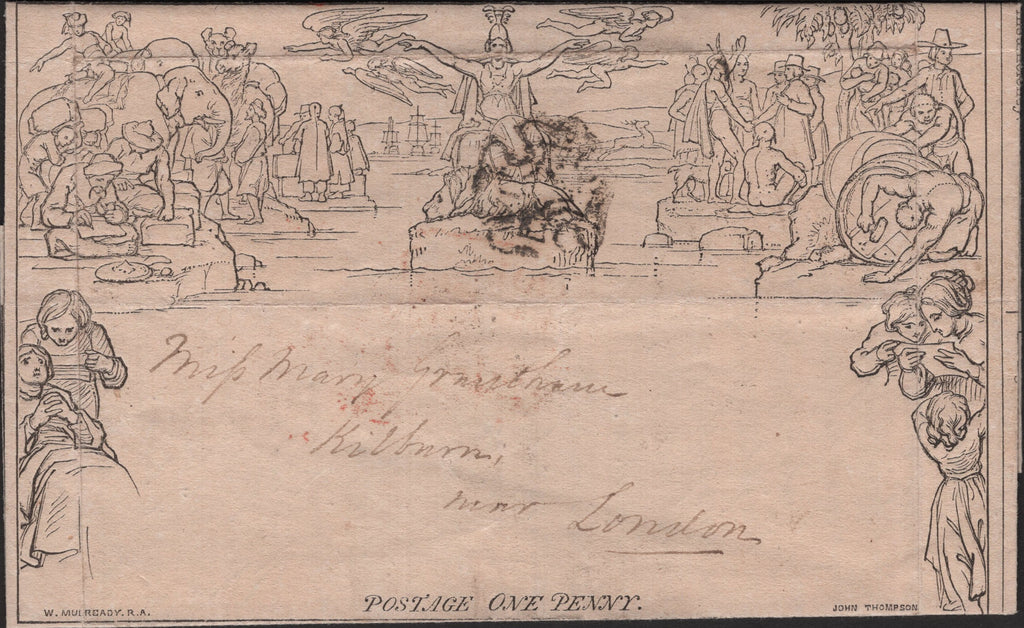 Miss Mary Grantham
Kilburn,
near London
W. MULREADY. R.A.
POSTAGE ONE PENNY.
JOHN THOMPSON